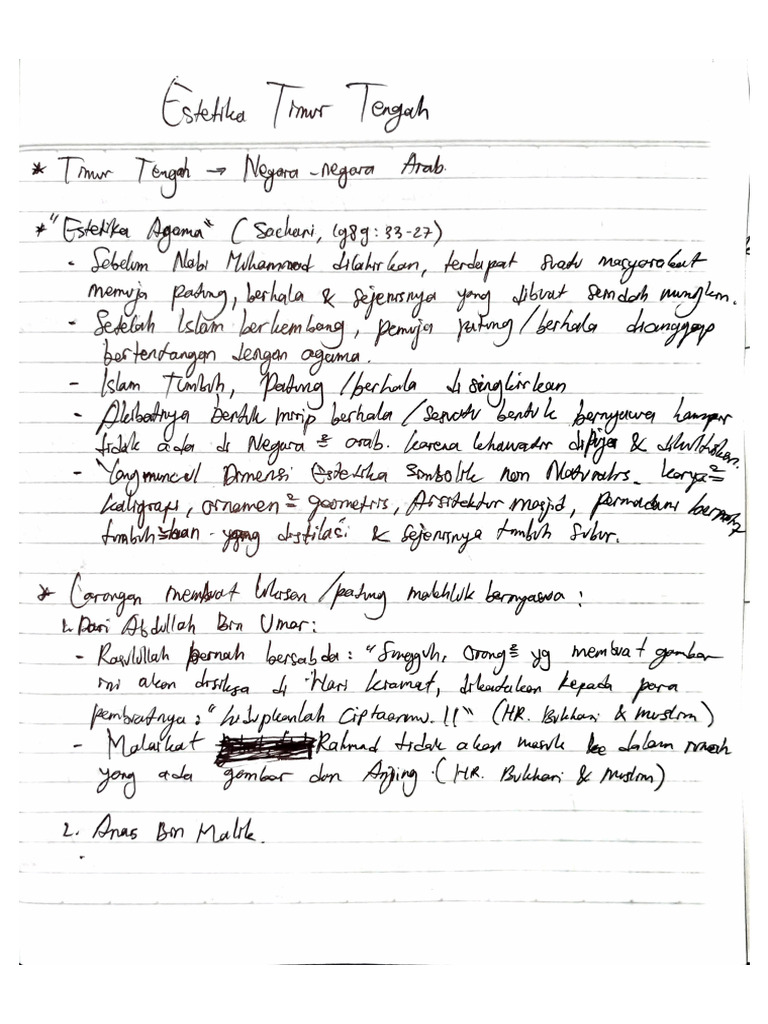 Estetika Timur Tengah
* Timur Tengah → Negara-negara Arab.
* "Estetika Agama" (Sachari, 1989: 33-27)
- Sebelum Nabi Muhammad dilahirkan, terdapat suatu masyarakat
memuja patung, berhala & sejenisnya yang dibuat seindah mungkin.
- Setelah Islam berkembang, pemuja patung/berhala dianggap
bertentangan dengan agama.
- Islam Tumbuh, patung/berhala di singkirkan
- Akibatnya bentuk mirip berhala/sesuatu bentuk bernyawa hampir
tidak ada di Negara² arab. karena khawatir dipuja &
- Yang muncul Dimensi Estetika Simbolik non Naturalis. karya²
kaligrafi, ornamen² geometris, Arsitektur masjid, permadani
tumbuh²an yang distilasi & sejenisnya tumbuh subur.
* Larangan membuat lukisan/patung makhluk bernyawa:
1. Dari Abdullah Bin Umar:
- Rasulullah pernah bersabda: "Sungguh, orang² yg membuat gambar
ini akan disiksa di Hari kiamat, dikatakan kepada para
pembuatnya: "hidupkanlah Ciptaanmu.!!" (HR. Bukhari & muslim)
- Malaikat Rahmad tidak akan masuk ke dalam rumah
yang ada gambar dan Anjing. (HR. Bukhari & muslim)
2. Anas Bin Malik.